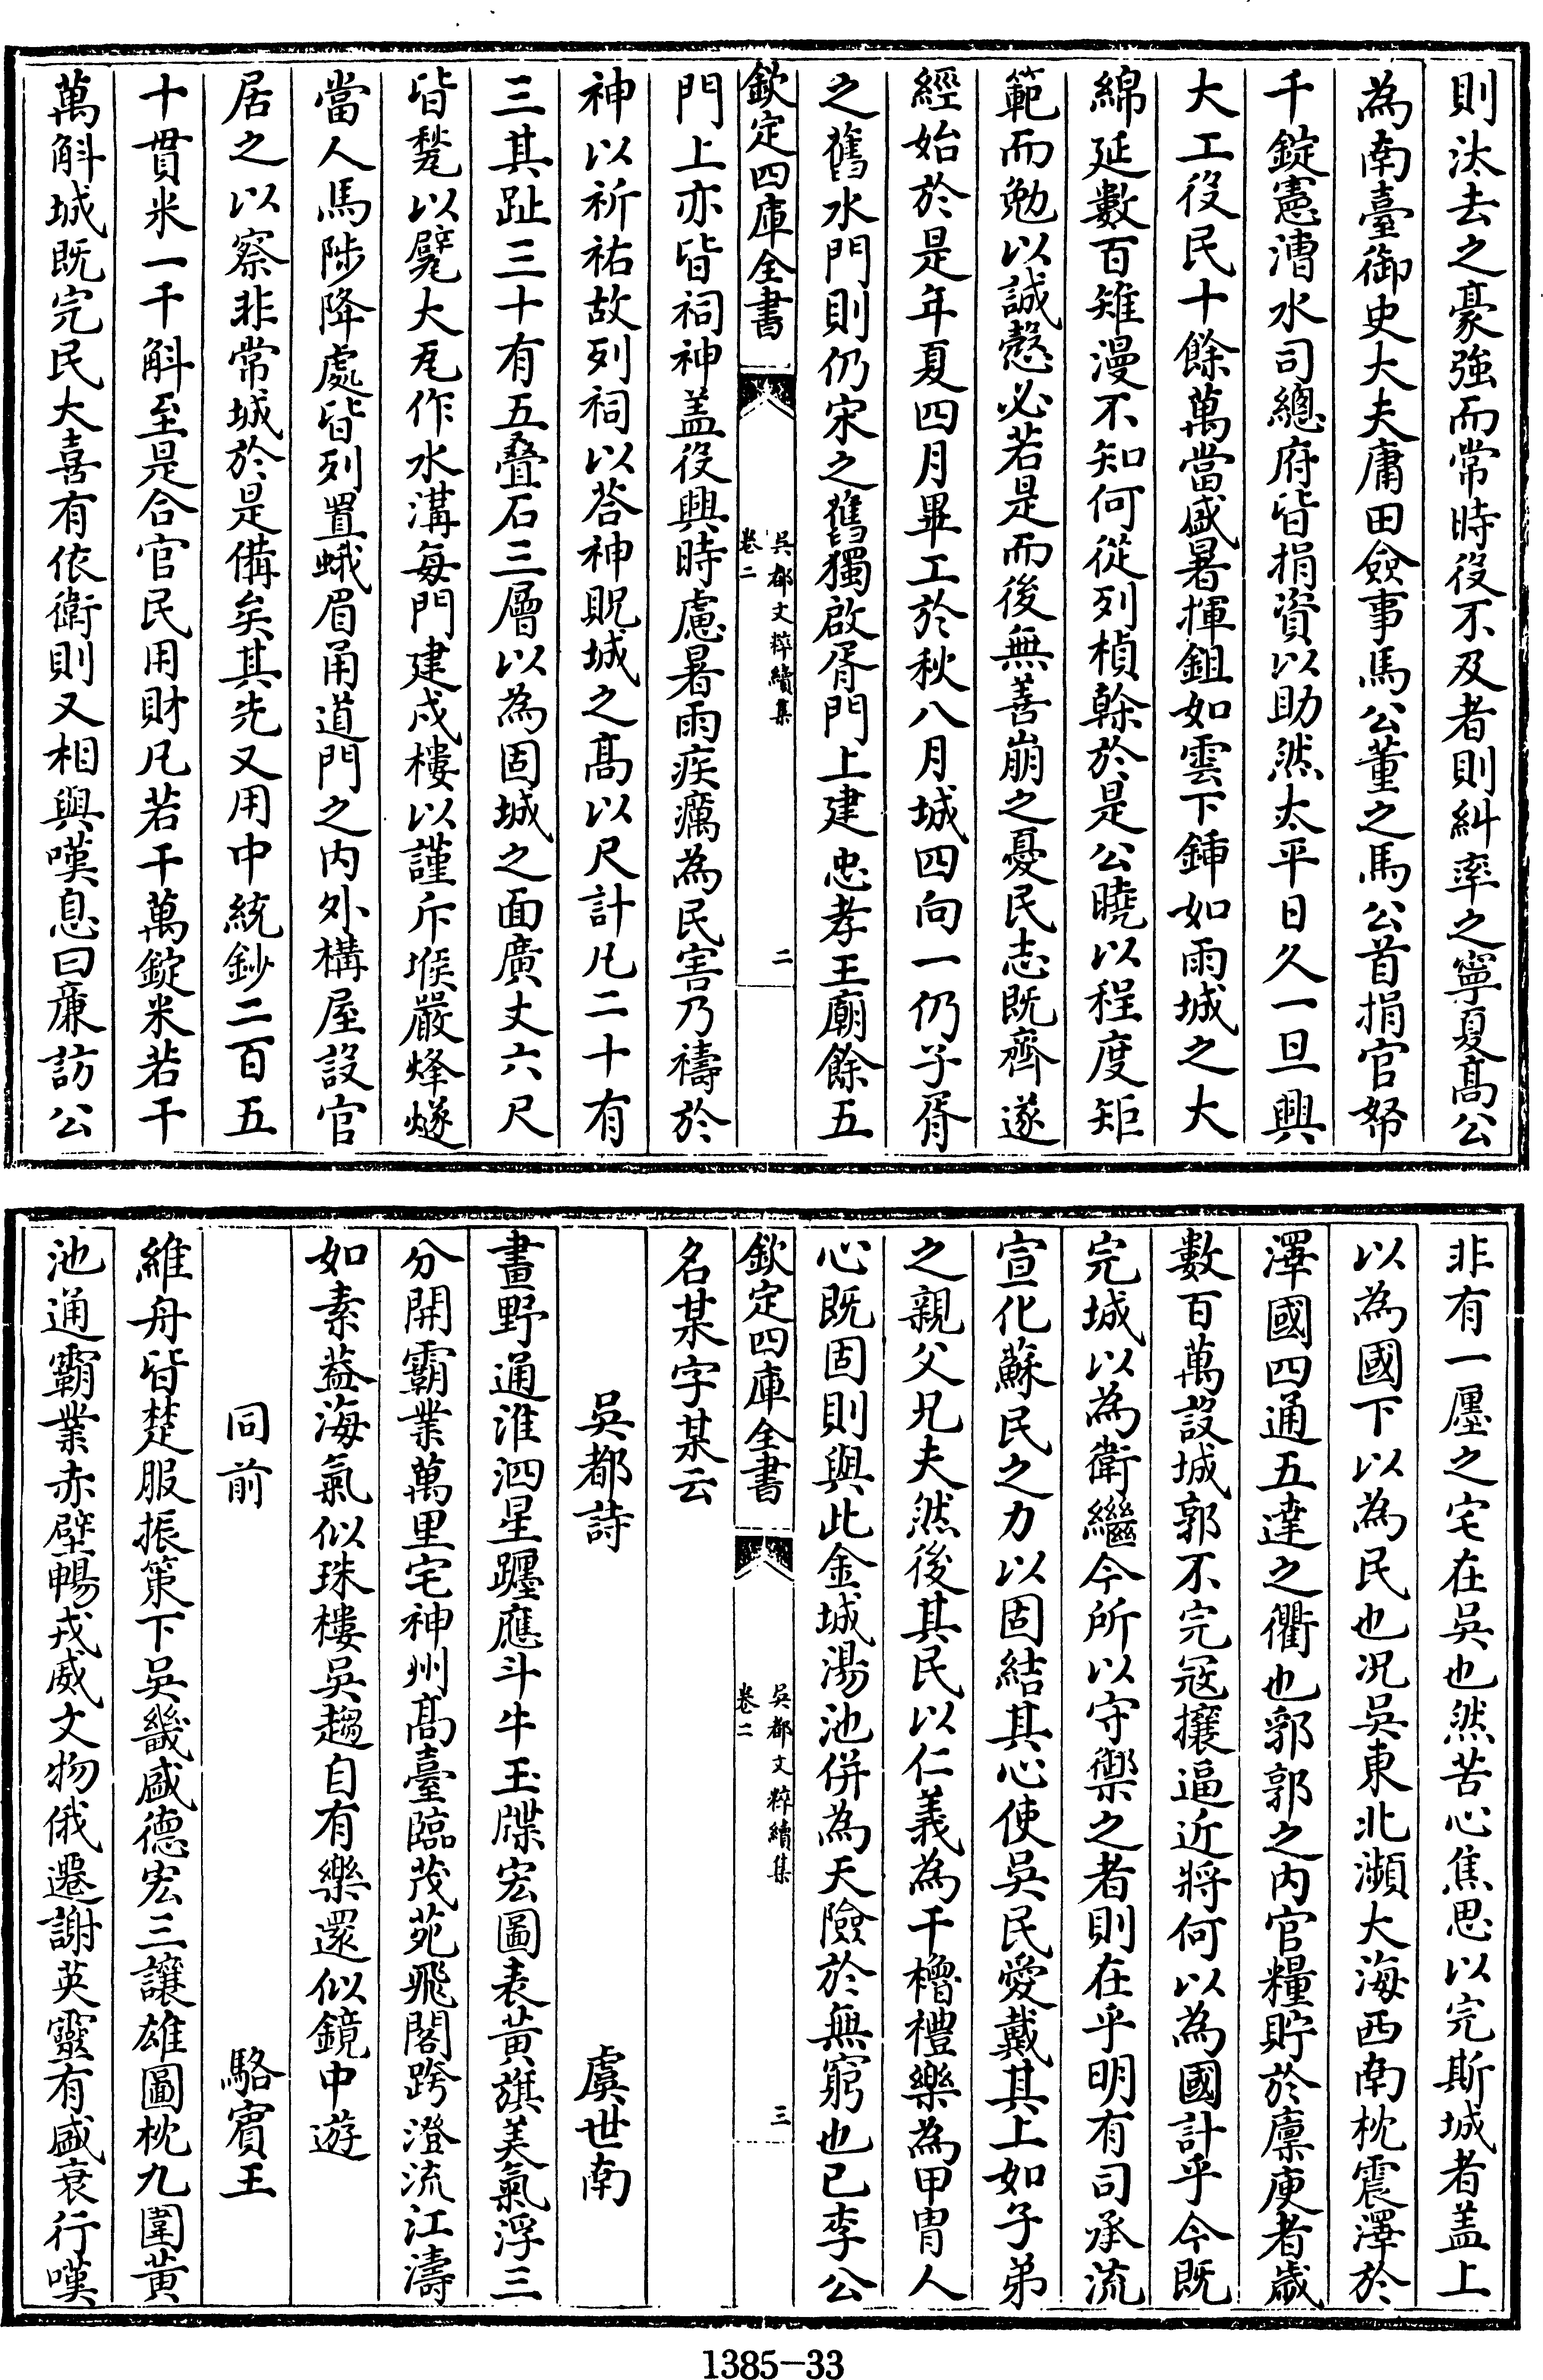 則汰去之豪強而常時役不及者則糾率之寧夏髙公
為南臺御史大夫庸田僉事馬公董之馬公首捐官帑
千錠憲漕水司總府皆捐資以助然太平日久一旦興
大工役民十餘萬當盛暑揮鉏如雲下鍤如雨城之大
綿延數百雉漫不知何從列楨榦於是公曉以程度矩
範而勉以誠慤必若是而後無善崩之憂民志既齊遂
經始於是年夏四月畢工於秋八月城四向一仍子胥
之舊水門則仍宋之舊獨啟胥門上建忠孝王廟餘五
欽定四庫全書
吳都文粹續集
卷二
二
門上亦皆祠神盖役興時慮暑雨疾癘為民害乃禱於
神以祈祐故列祠以荅神貺城之髙以尺計凡二十有
三其趾三十有五疊石三層以為固城之面廣丈六尺
皆甃以甓大瓦作水溝每門建戍樓以謹斥堠嚴烽燧
當人馬陟降處皆列置蛾眉甬道門之内外構屋設官
居之以察非常城於是備矣其先又用中統鈔二百五
十貫米一千斛至是合官民用財凡若干萬錠米若干
萬斛城既完民大喜有依衛則又相與嘆息曰亷訪公
非有一㕓之宅在吳也然苦心焦思以完斯城者盖上
以為國下以為民也况吳東北瀕大海西南枕震澤於
澤國四通五達之衢也郛郭之内官糧貯於廪庾者歲
數百萬設城郭不完冦攘逼近將何以為國計乎今既
完城以為衛繼今所以守禦之者則在乎明有司承流
宣化蘇民之力以固結其心使吳民愛戴其上如子弟
之親父兄夫然後其民以仁義為干櫓禮樂為甲胄人
心既固則與此金城湯池併為天險於無窮也已李公
欽定四庫全書
吳都文粹續集
卷二
三
名某字某云
吳都詩 虞世南
畫野通淮泗星躔應斗牛玉牒宏圖表黄旗美氣浮三
分開霸業萬里宅神州髙臺臨茂苑飛閣跨澄流江濤
如素葢海氣似珠樓吳趨自有樂還似鏡中遊
同前 駱賓王
維舟皆楚服振策下吳畿盛德宏三讓雄圖枕九圍黄
池通霸業赤壁暢戎威文物俄遷謝英靈有盛衰行嘆
1385-33